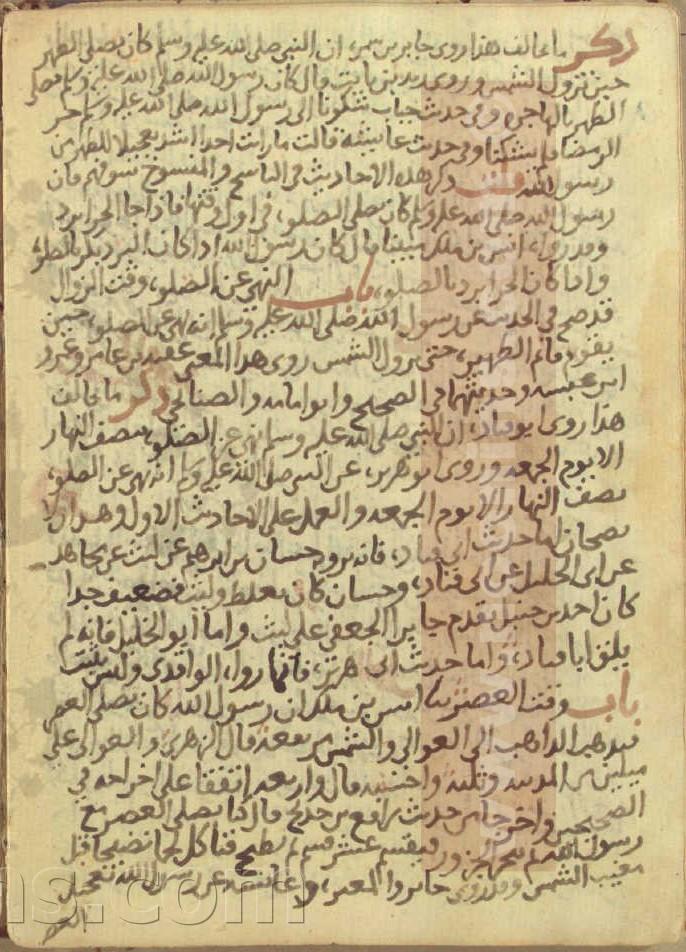 ذكر ما يخالف هذا روى جابر بن سمرة ان النبي صلى الله عليه وسلم كان يصلي الظهر
حين تزول الشمس وروى زيد بن ثابت قال كان رسول الله صلى الله عليه وسلم يصلي
الظهر بالهاجرة وفي حديث خباب شكونا الى رسول الله صلى الله عليه وسلم حر
الرمضاء فلم يشكنا وفي حديث عائشة قالت ما رايت احدا اشد تعجيلا للظهر من
رسول الله قلت ذكر هذه الاحاديث في الناسخ والمنسوخ فان
رسول الله صلى الله عليه وسلم كان يصلي الصلوة في اول وقتها فاذا جا الحر ابرد
وقد روى انس بن ملك مبينا قال كان رسول الله اذا كان البرد بكر بالصلوة
واذا كان الحر ابرد بالصلوة باب النهي عن الصلوة وقت الزوال
قد صح في الحديث عن رسول الله صلى الله عليه وسلم انه نهى عن الصلوة حين
يقوم قائم الظهيرة حتى تزول الشمس روى هذا المعنى عقبة بن عامر وعمرو
ابن عبسة وحديثهما في الصحيح وابو امامة والصنابحي ذكر ما يخالف
هذا روى ابو قتادة ان النبي صلى الله عليه وسلم نهى عن الصلوة نصف النهار
الا يوم الجمعة وروى ابو هريرة عن النبي صلى الله عليه وسلم انه نهى عن الصلوة
نصف النهار الا يوم الجمعة والعمل على الاحاديث الاول وهذان لا
يصحان اما حديث ابي قتادة فانه يرويه حسان بن ابرهيم عن ليث عن مجاهد
عن ابي الخليل عن ابي قتادة وحسان كان يغلط وليث فضعيف جدا
كان احمد بن حنبل يقدم جابرا الجعفي على ليث واما ابو الخليل فانه لم
يلق ابا قتادة واما حديث ابي هريرة فانما رواه الواقدي وليس بثبت
باب وقت العصر انس بن ملك ان رسول الله كان يصلي العصر
فيذهب الذاهب الى العوالي والشمس مرتفعة قال الزهري والعوالي على
ميلين من المدينة وثلثة واحسبه قال واربعة اتفقا على اخراجه في
الصحيحين واخرجا من حديث رافع بن خديج قال كنا نصلي العصر مع
رسول الله ثم ننحر الجزور فيقسم عشر قسم ثم يطبخ فناكل لحما نضيجا قبل
مغيب الشمس وقد روى جابر هذا المعنى وعائشة عن رسول الله تعجيل
العصر